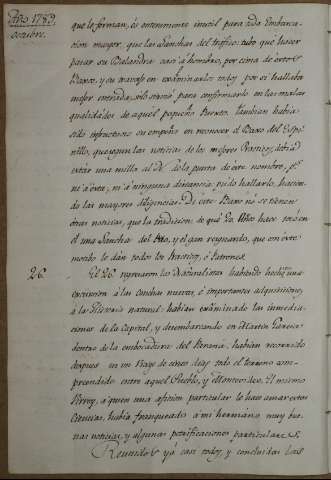 Año 1789
octubre.
que lo forman, és enteramente inutil para toda Embarca-
cion mayor, que las Lanchas del trafico: tubo que hacer
pasar su Balandra casi à hombro, por cima de estos
Bancos, y su trabajo en examinarlos todos por si hallaba
mejor entrada, solo sirvió para confirmarlo en las malas
qualidades de aquel pequeño Puerto. Tambien habia
sido infructuoso su empeño en reconocer el Banco del Espi-
nillo, que segun las noticias de los mejores Practicos, debia
estar una milla al de la punta de este nombre, p.º
ni à esta, ni à ninguna distancia pudo hallarlo, hacien-
do las mayores diligencias: De este Banco no se tienen
otras noticias, que la tradicion de que 20 Años hace tocó en
él una Lancha del Rio, y el gran resguardo, que con este
motivo le dán todos los Practicos, ó Patrones.
26. El 26 regresaron los Naturalistas habiendo hecho una
excursion à las Conchas nuevas, é importantes adquisiciones
à la Historia natural: habian examinado las inmedia-
ciones de la Capital, y desembarcando en Martin Garcia
dentro de la embocadura del Paraná, habian recorrido
despues en un Viage de cinco dias todo el terreno com-
prendido entre aquel Pueblo, y Montevideo. El mismo
Virrey, à quien una aficion particular le hace amar estas
Ciencias, habia franqueado à mi hermano muy bue-
nas noticias, y algunas petrificaciones particulares.
Reunidos yá casi todos, y concluidas las